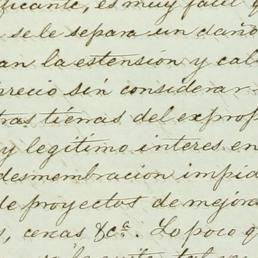 ificante, es muy fácil q
se le separa un daño
an la estension y cali
precio sin considerar
tras tierras del exprop
y legítimo interes en
desmembracion impid
de proyectos de mejora
s, cercas &cª. Lo poco q